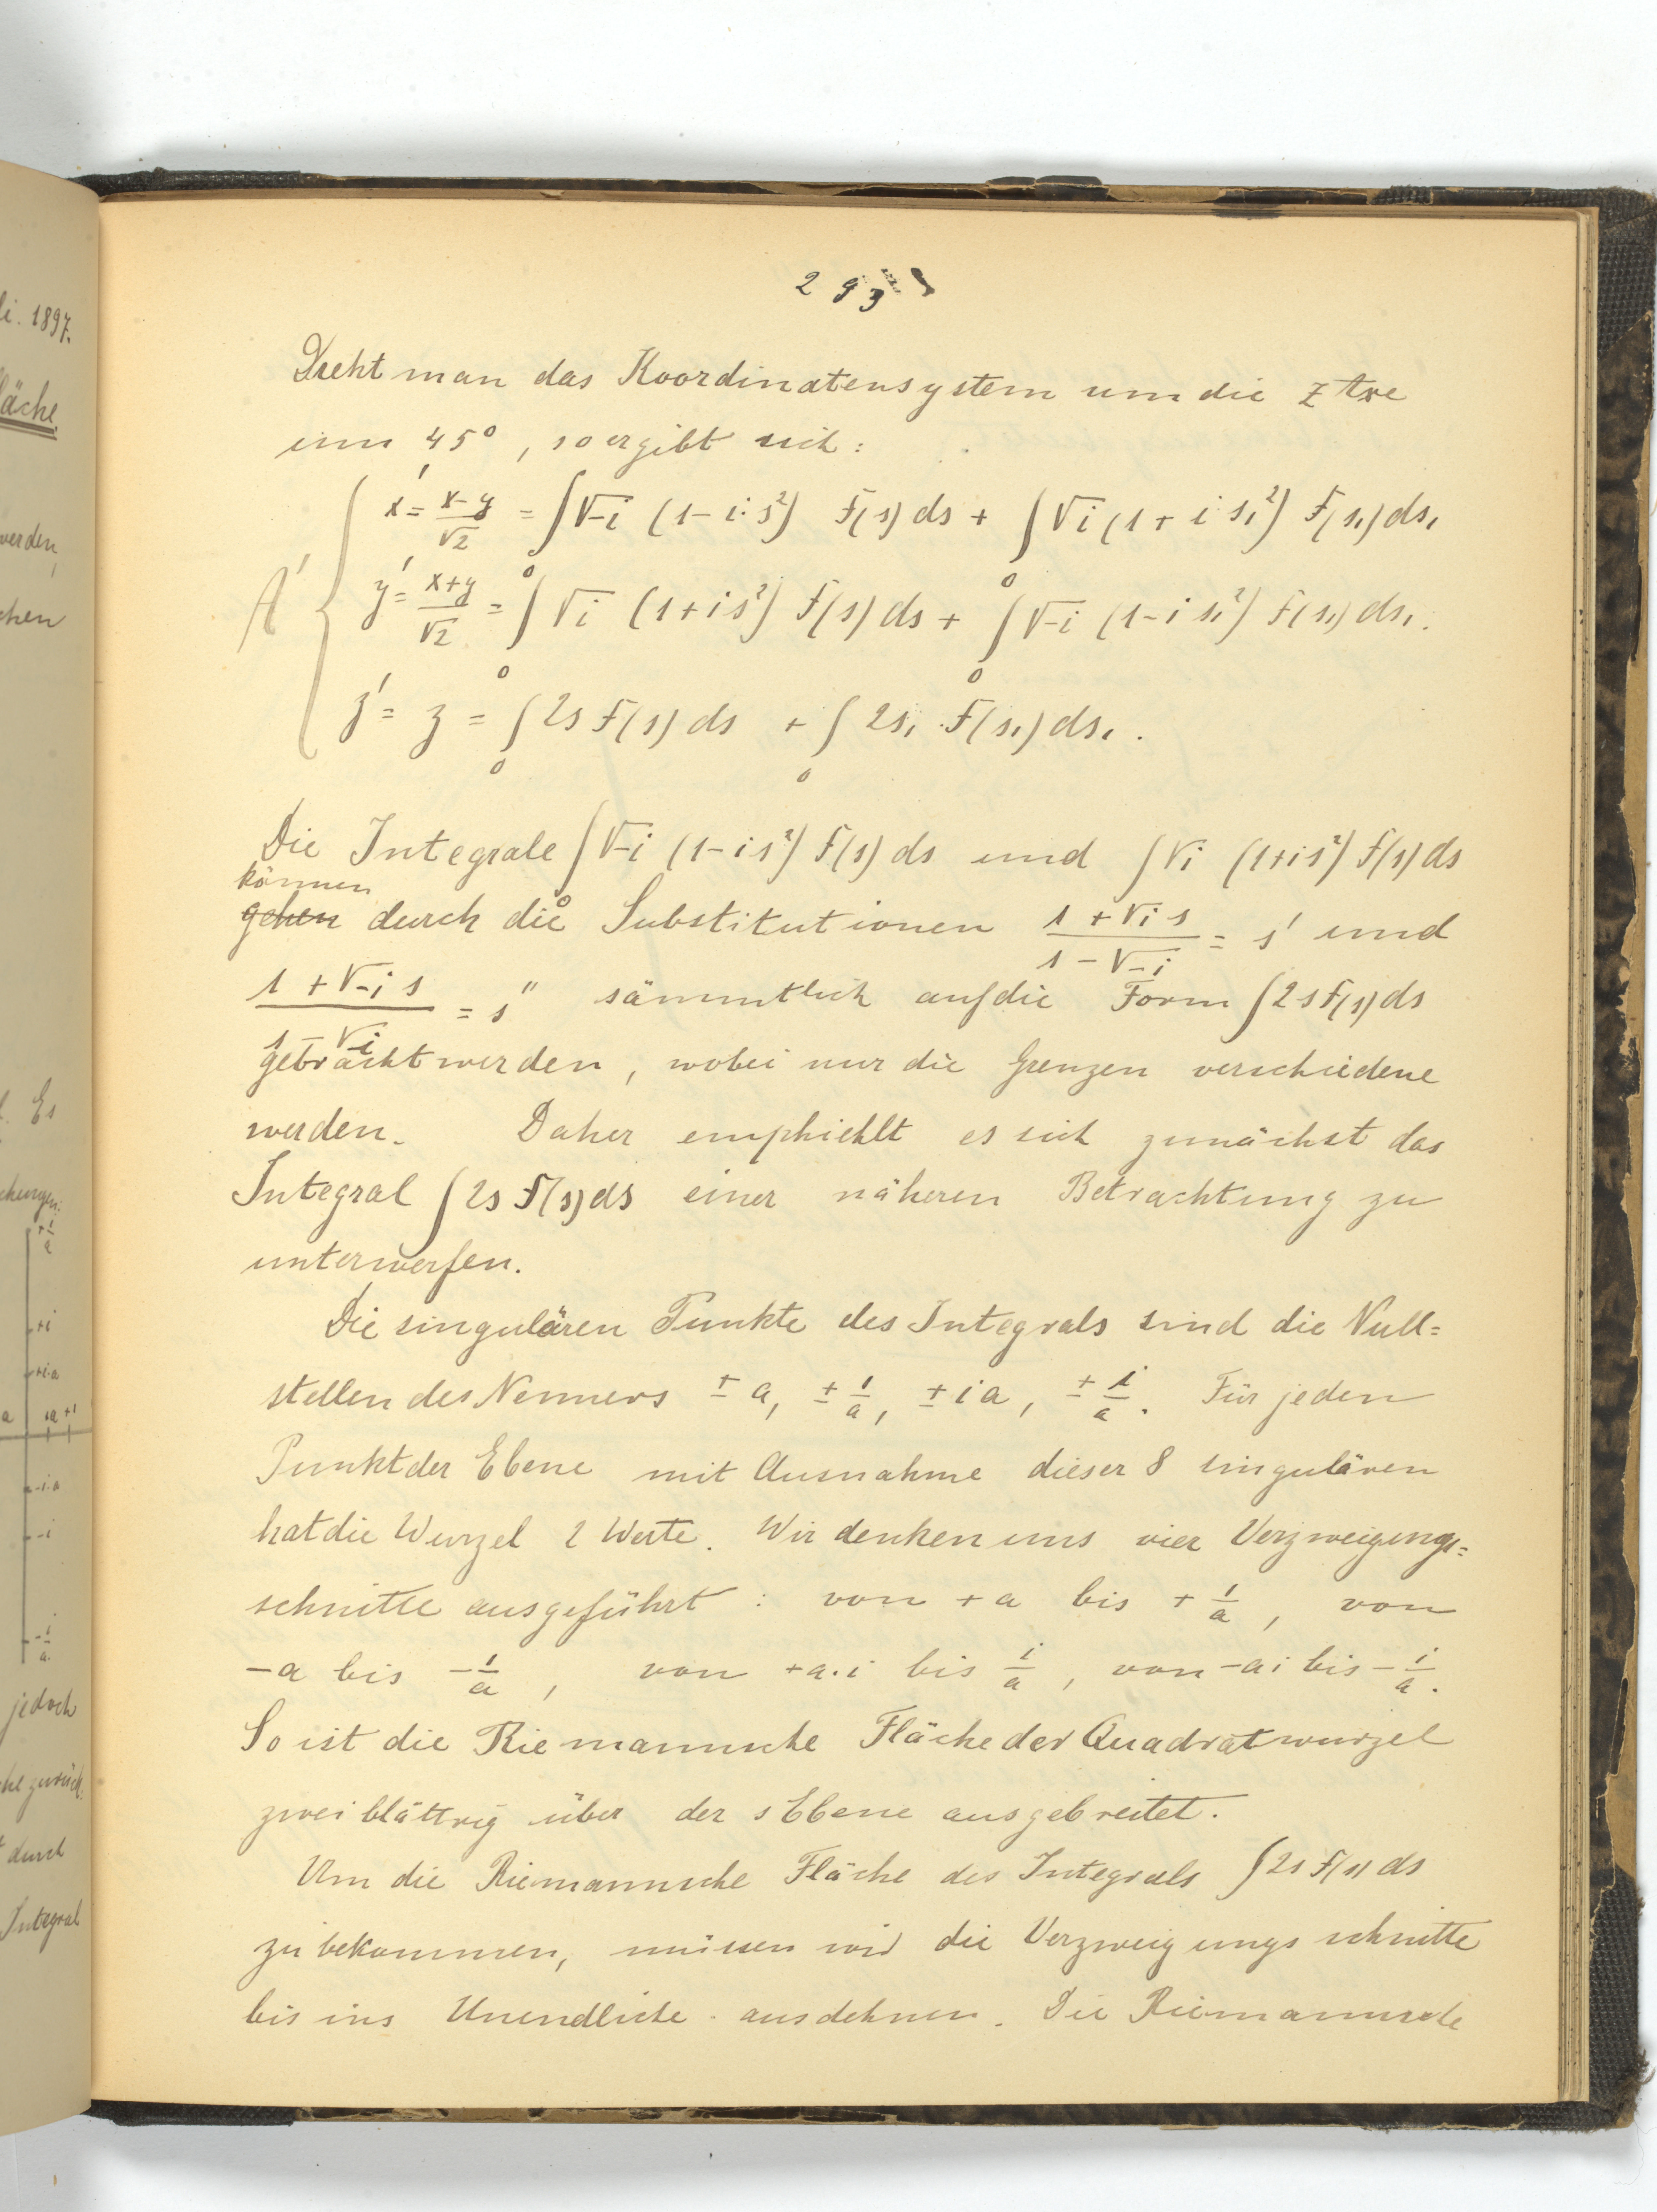 li. 1897.
läche
werden,
chen
l. Es
+1/a
+i
+i·a
a +1
-i·a
-i
-i/a
jedoch
durch
Integral
293
Dreht man das Koordinatensystem um die z Axe
um 45°, so ergibt sich:
A' { x' = (x-y)/√2 = ∫₀ √-i (1-i·s²) F(s) ds + ∫₀ √i (1+i s₁²) F(s₁) ds₁
y' = (x+y)/√2 = ∫₀ √i (1+is²) F(s) ds + ∫₀ √-i (1-i s₁²) F(s₁) ds₁.
z' = z = ∫₀ 2s F(s) ds + ∫₀ 2s₁ F(s₁) ds₁.
Die Integrale ∫₀ √-i (1-is²) F(s) ds und ∫ √i (1+is²) F(s) ds
können
gehen durch die Substitutionen (1+√i s)/(1-√-i) = s' und
(1+√-i s)/(1-√i) = s'' sämmtlich auf die Form ∫ 2s F(s) ds
gebracht werden, wobei nur die Grenzen verschiedene
werden. Daher emphiehlt es sich zunächst das
Integral ∫ 2s F(s) ds einer näheren Betrachtung zu
unterwerfen.
Die singulären Punkte des Integrals sind die Null=
stellen des Nenners ± a, ± 1/a, ± i a, ± i/a. Für jeden
Punkt der Ebene mit Ausnahme dieser 8 singulären
hat die Wurzel 2 Werte. Wir denken uns vier Verzweigungs=
schnitte ausgeführt: von +a bis + 1/a, von
-a bis -1/a, von +a·i bis i/a, von -ai bis -i/a.
So ist die Riemannsche Fläche der Quadratwurzel
zweiblättrig über der s Ebene ausgebreitet.
Um die Riemannsche Fläche des Integrals ∫ 2s F(s) ds
zu bekommen, müssen wir die Verzweigungsschnitte
bis ins Unendliche ausdehnen. Die Riemannsche